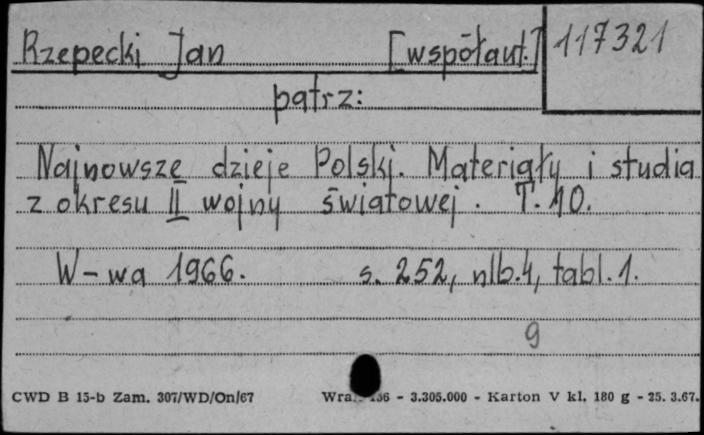 Rzepecki Jan [współaut.] 117321
patrz:
Najnowsze dzieje Polski. Materiały i studia
z okresu II wojny światowej. T. 10.
W-wa 1966. s. 252, nlb. 4, tabl. 1.
9
CWD B 15-b Zam. 307/WD/On/67 - 3.305.000 - Karton V kl. 180 g - 25. 3.67.